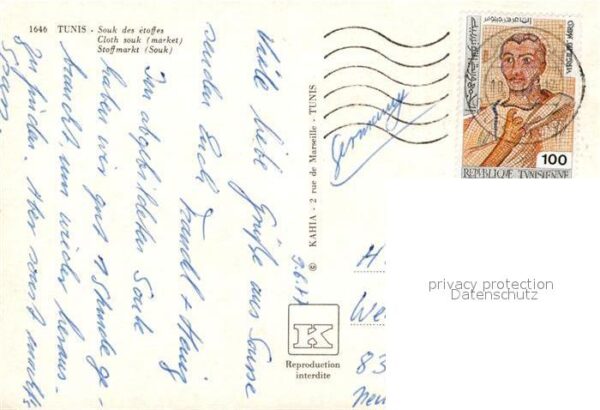 1646 TUNIS - Souk des étoffes
Cloth souk (market)
Stoffmarkt (Souk)
Viele liebe Grüße aus Sousse
senden Euch Traudl + Hansj
Im abgebildeten Souk
haben wir gut 1 Stunde ge-
braucht, um wieder heraus-
zufinden. Aber sonst macht's
Spass.
9.6.
© KAHIA - 2 rue de Marseille - TUNIS
Germany
K
Reproduction
interdite
VIRGILE AU MIRO
100
REPUBLIQUE TUNISIENNE
H
We
83
neu
privacy protection
Datenschutz